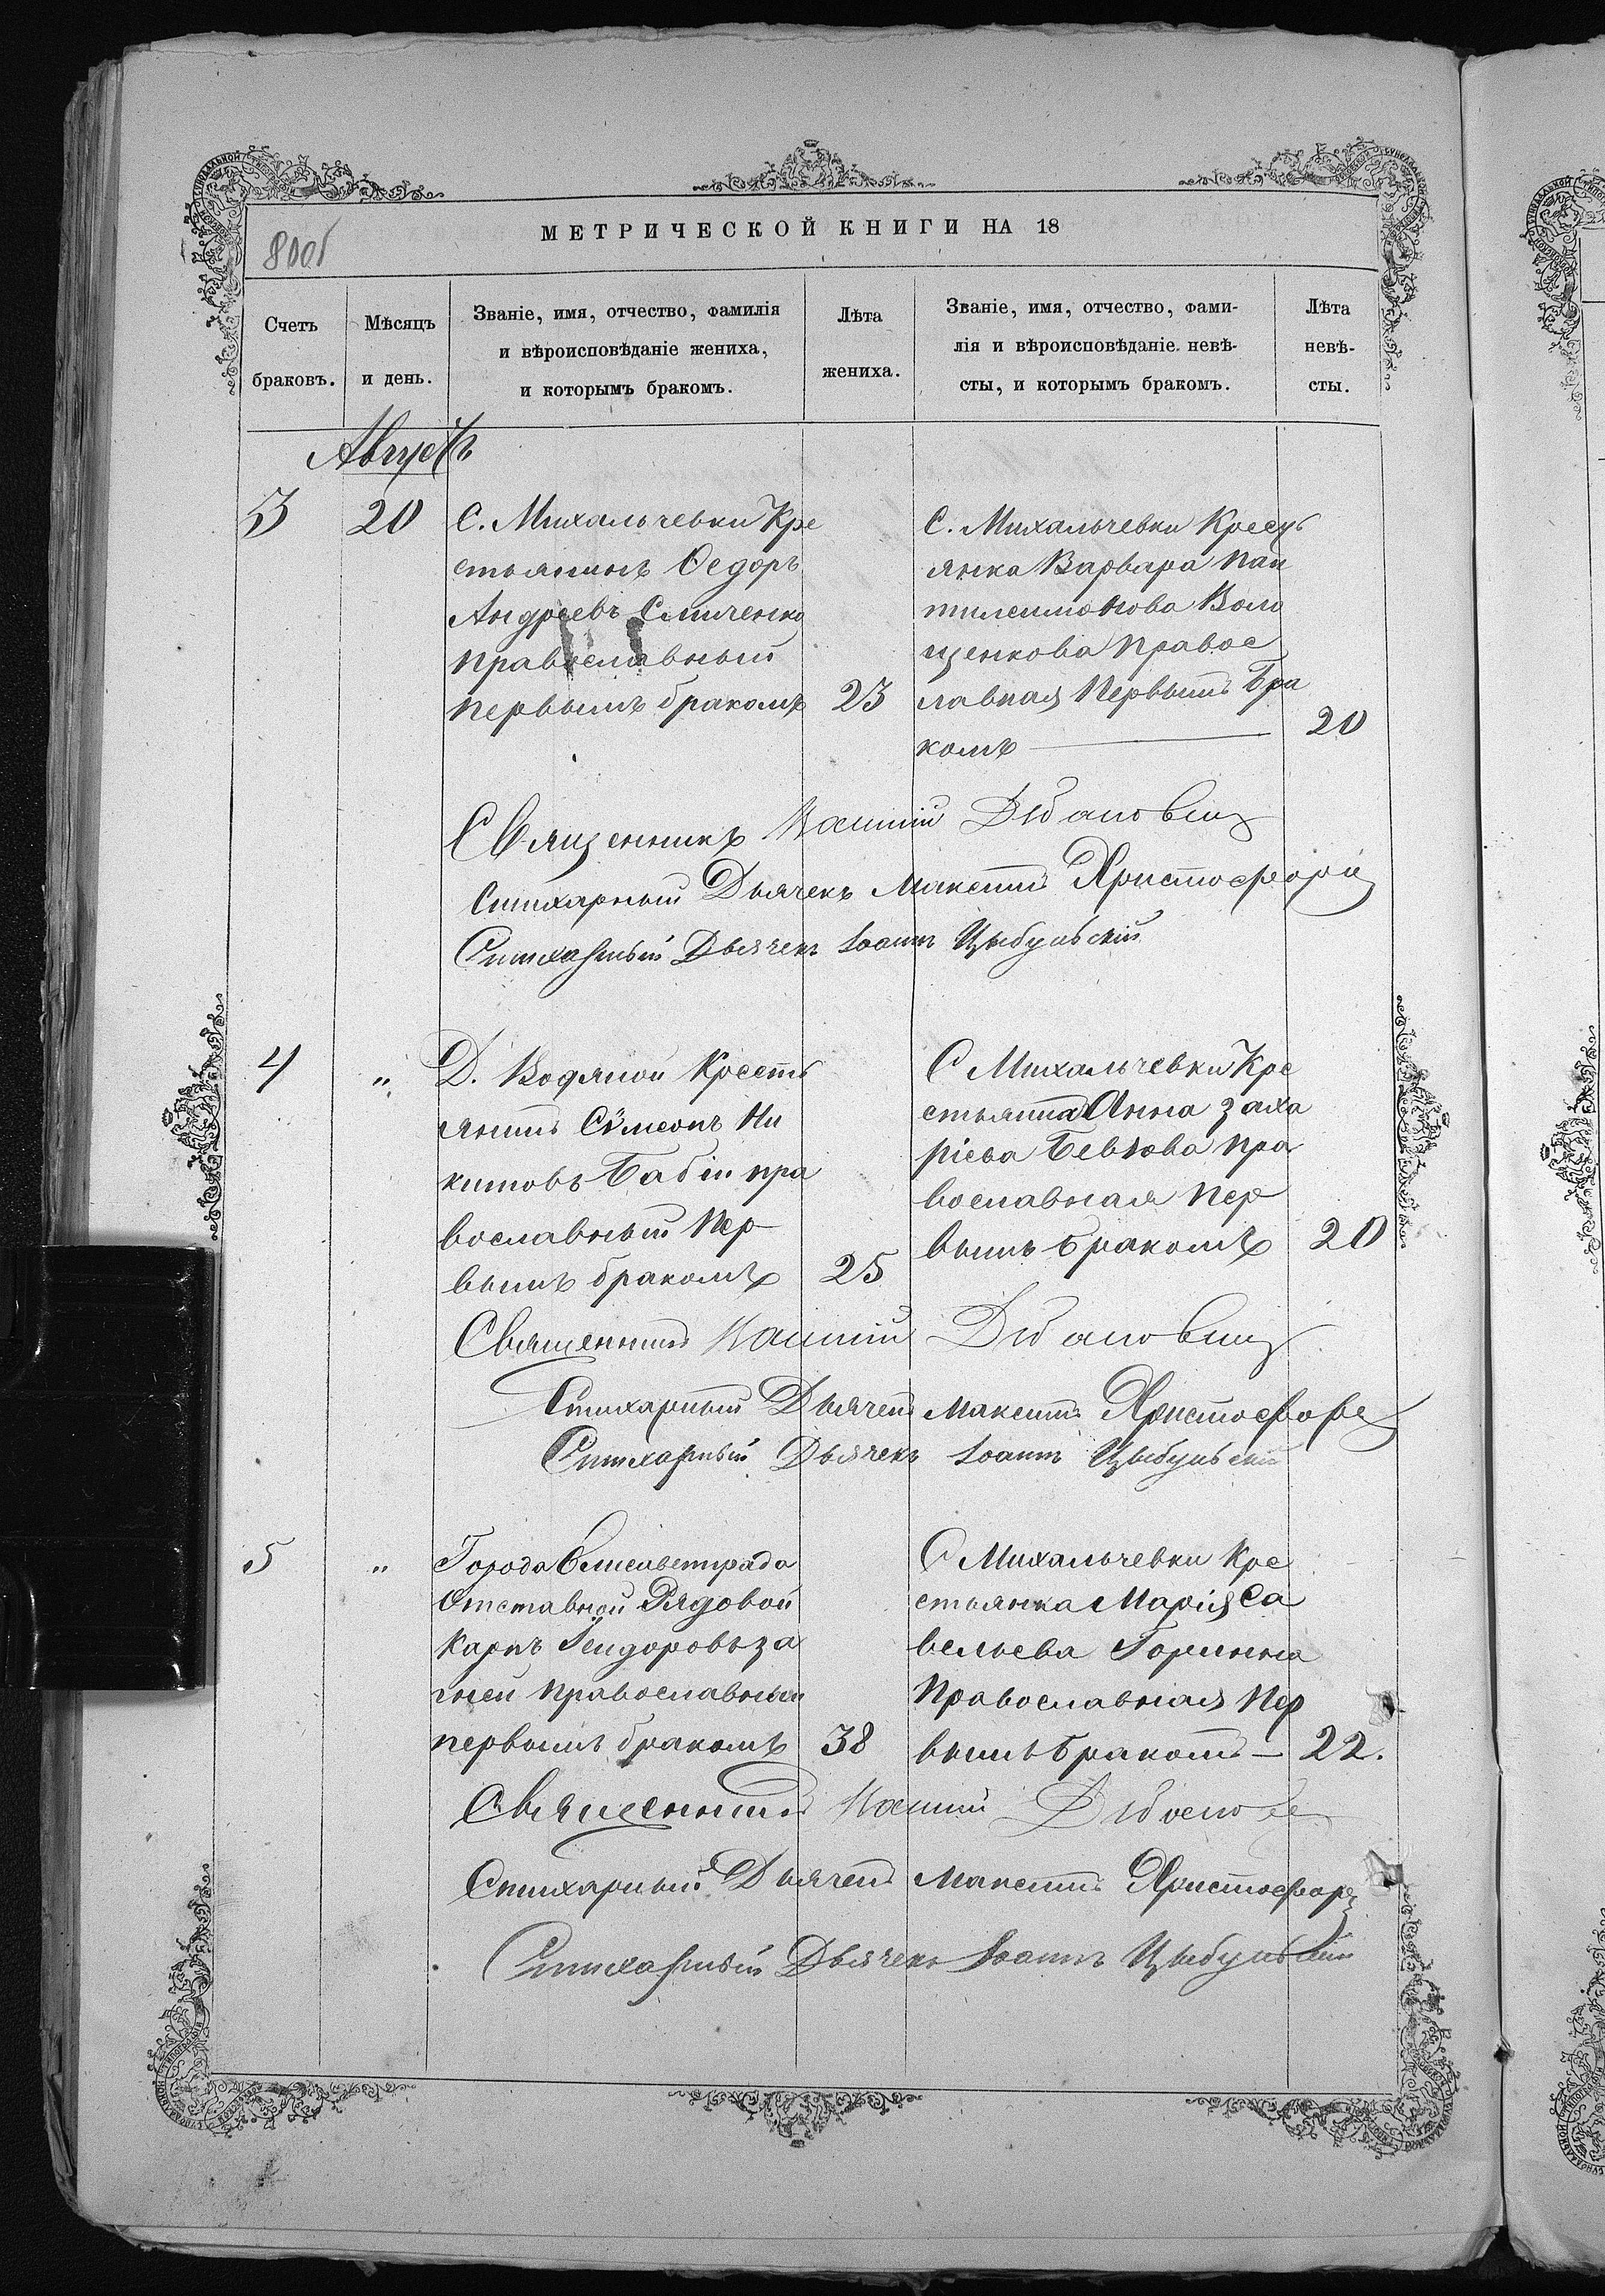 80об
МЕТРИЧЕСКОЙ КНИГИ НА 18
Счетъ браковъ.
Мѣсяцъ и день.
Званіе, имя, отчество, фамилія
и вѣроисповѣданіе жениха,
и которымъ бракомъ.
Лѣта жениха.
Званіе, имя, отчество, фами-
лія и вѣроисповѣданіе невѣ-
сты, и которымъ бракомъ.
Лѣта невѣ-
сты.
Августъ
3 20
С. Михальчевки Кре
стьянинъ Ѳедоръ
Андреевъ
православный
первымъ бракомъ 23
С. Михальчевки Кресть
янка Варвара Пан
тилеимонова Воло
щенкова Правос
лавная Первымъ Бра
комъ 20
Священникъ
Стихарный Дьячекъ Максимъ Христофоров
Стихарный Дьячекъ Іоаннъ Цыбульскій
4 "
Д. Водяной Кресть
янинъ Сѵмеонъ Ни
китовъ Бабій пра
вославный Пер
вымъ бракомъ 25
С Михальчевки Кре
стьянка Анна Заха
ріева Бевзова пра
вославная Пер
вымъ бракомъ 20
Священникъ
Стихарный Дьячекъ Максимъ Христофоров
Стихарный Дьячекъ Іоаннъ Цыбульскій
5 "
Города Елисаветграда
Отставной Рядовой
Карпъ За
гней Православный
первымъ бракомъ 38
С Михальчевки Кре
стьянка Марія Са
вельева Горинна
Православная Пер
вымъ бракомъ — 22.
Священникъ
Стихарный Дьячекъ Максимъ Христофоров
Стихарный Дьячекъ Іоаннъ Цыбульскій